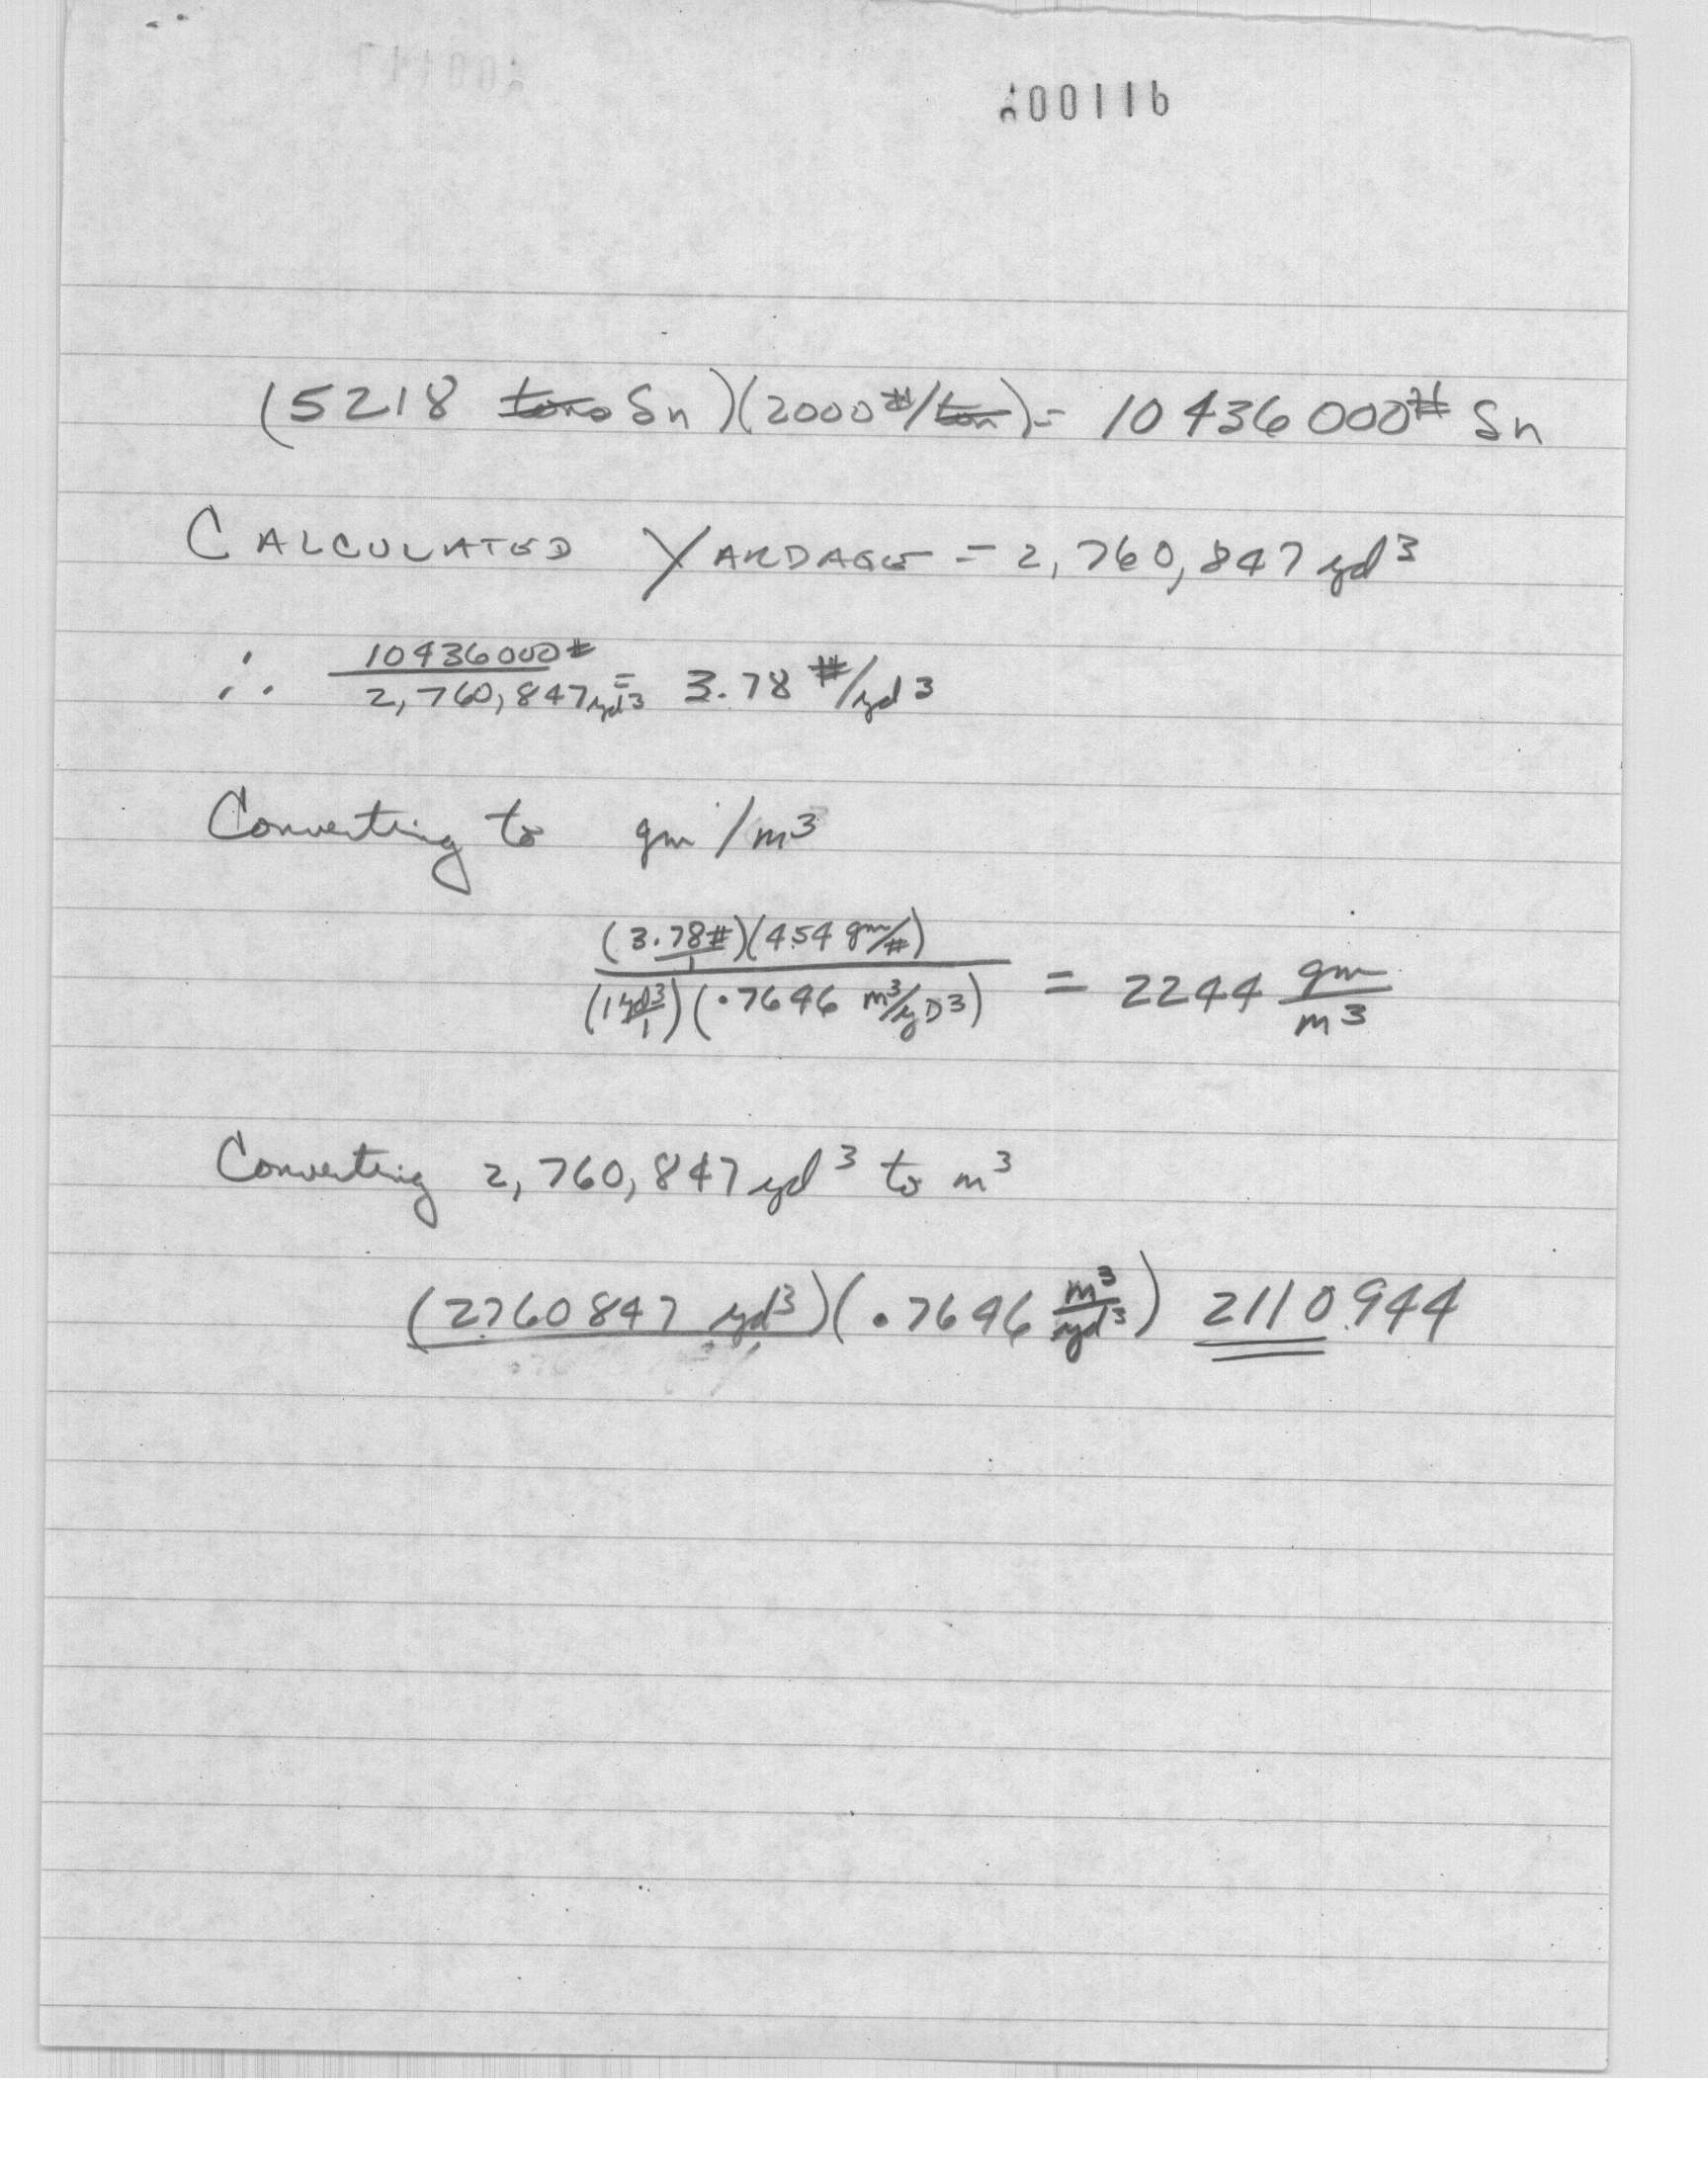 200116
(5218 tons Sn)(2000#/ton)= 10436000# Sn
CALCULATED YARDAGE = 2,760,847 yd³
∴ 10436000# / 2,760,847 yd³ = 3.78 #/yd³
Converting to gm/m³
(3.78#/1)(454 gm/#)
/ (1 yd³/1)(.7646 m³/yD³) = 2244 gm/m³
Converting 2,760,847 yd³ to m³
(2760847 yd³)(.7646 m³/yd³) 2110944